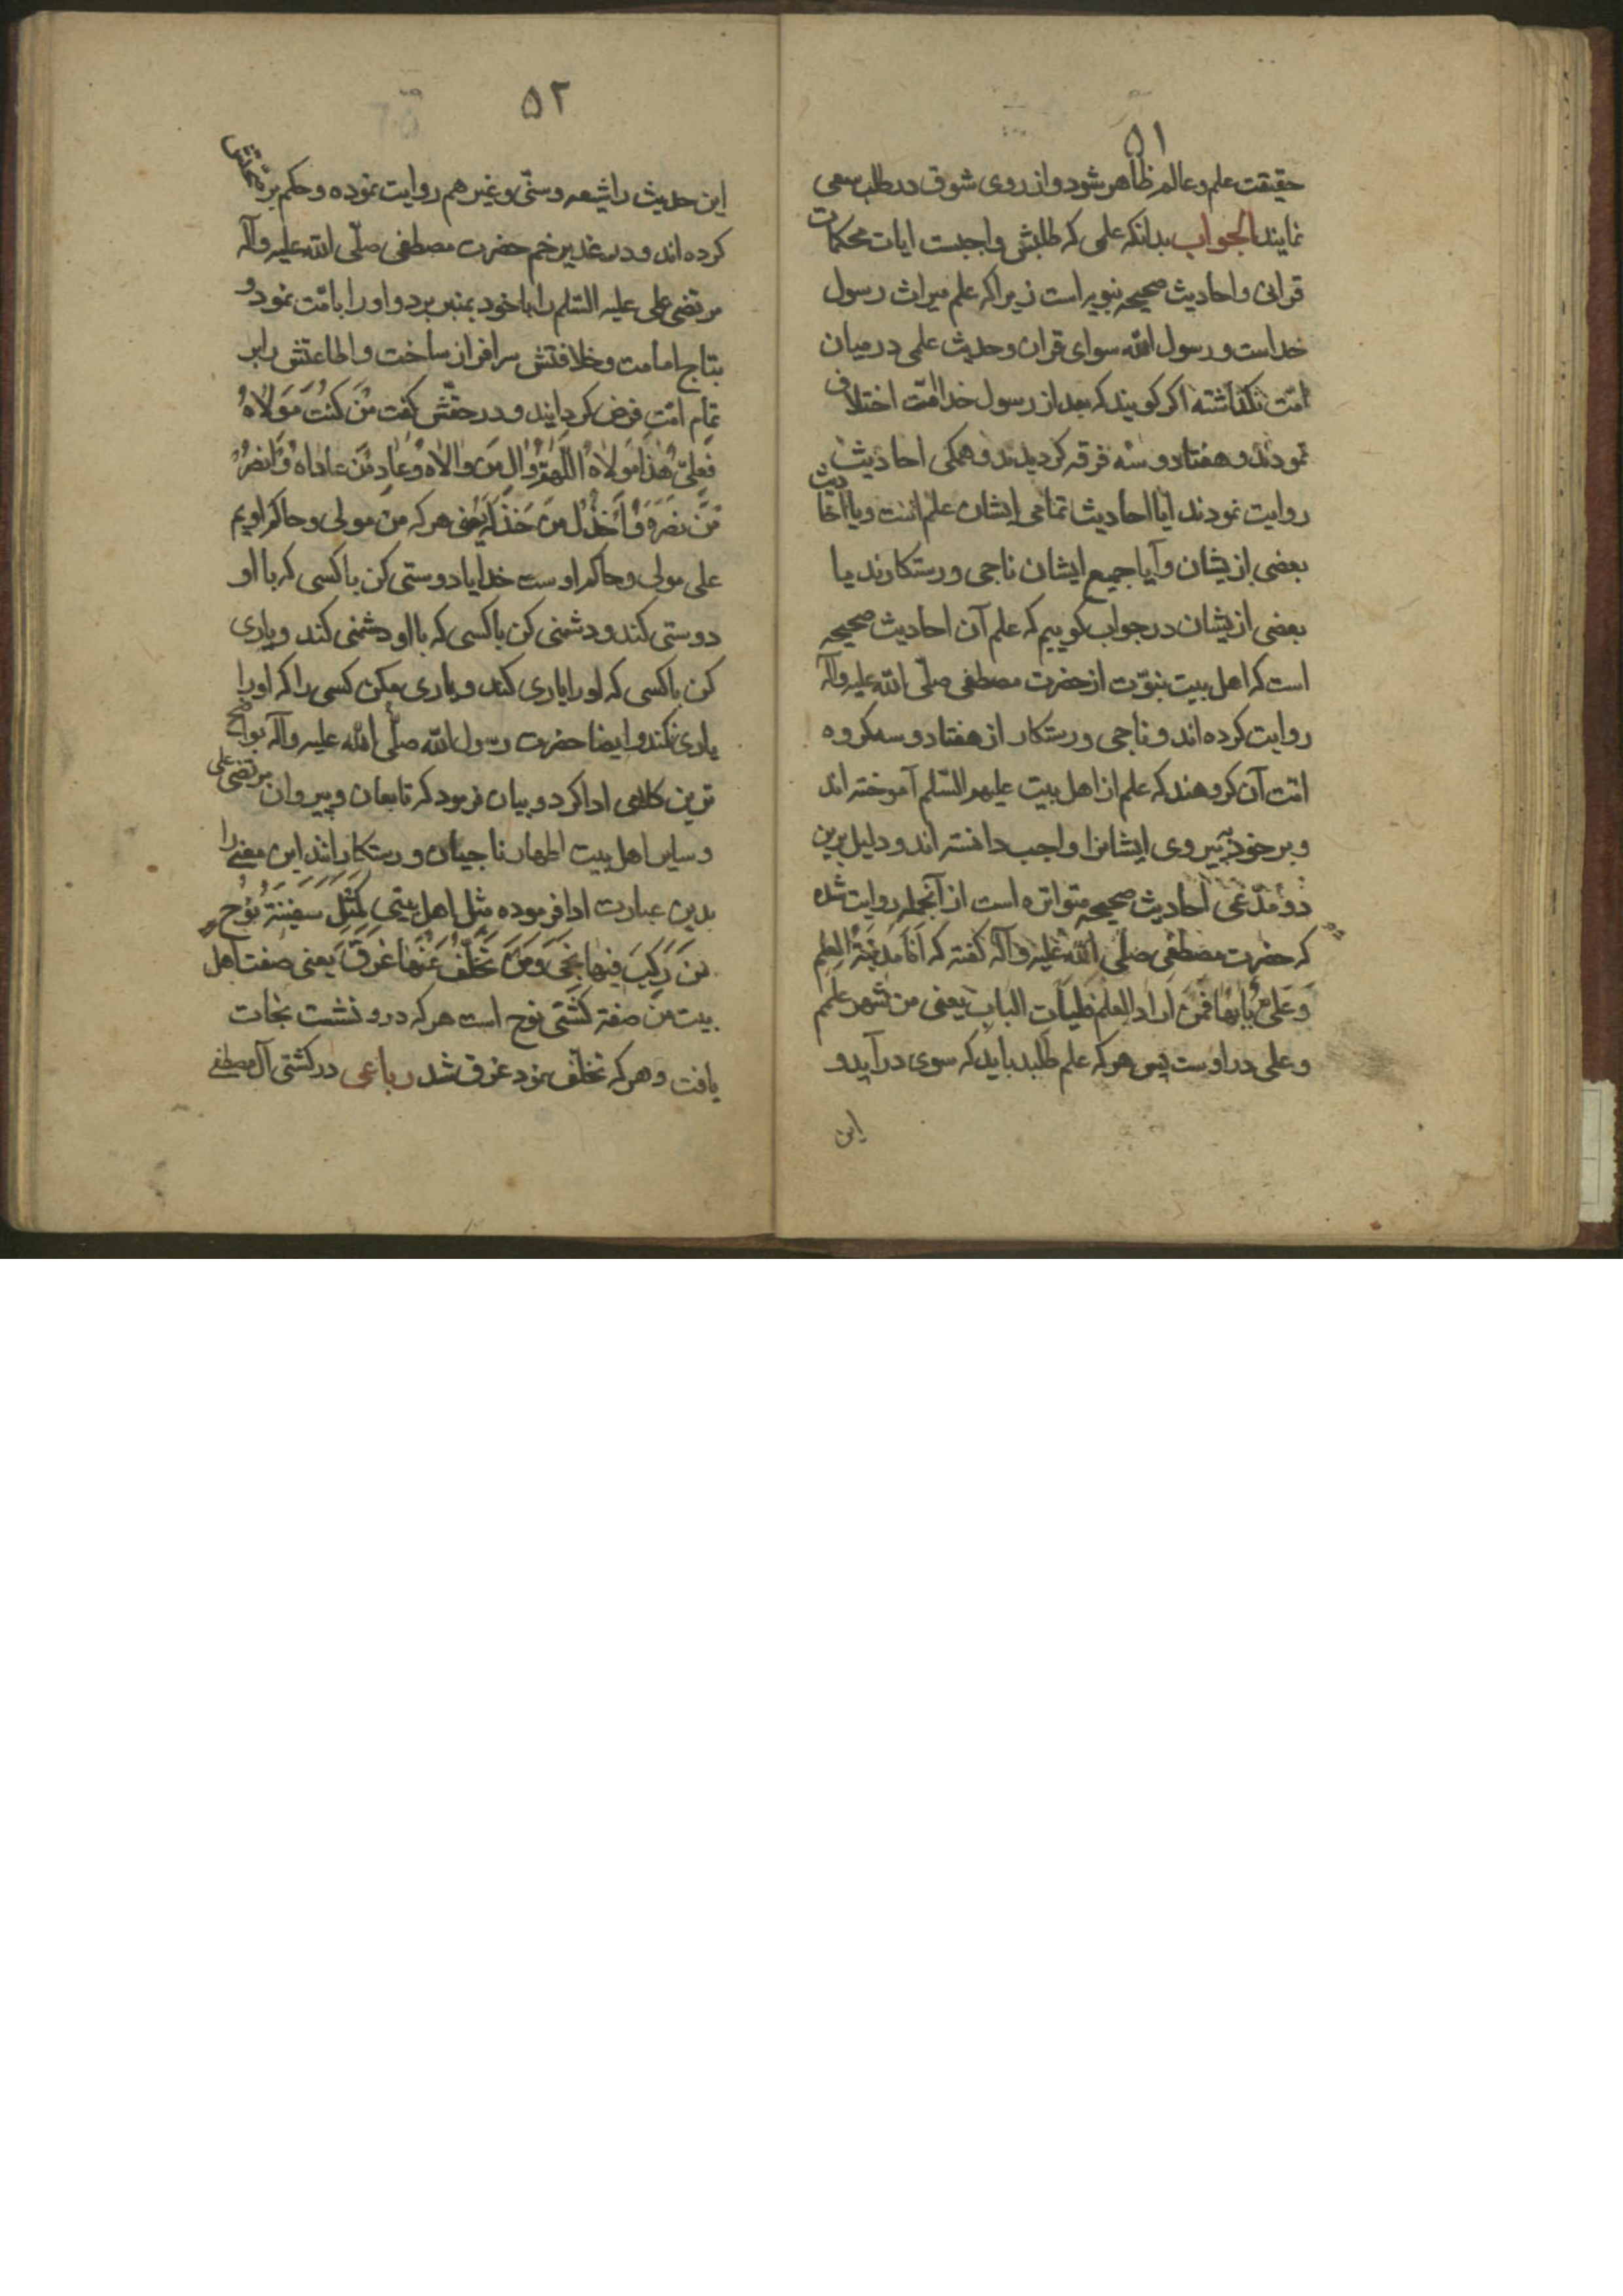 ۵۱
حقیقت علم و عالم ظاهر شود و از روی شوق در طلب سعی
نمایند الجواب بدانکه علمی که طلبش واجبست ایات محکمات
قرانی و احادیث صحیحه نبویه است زیرا که علم میراث رسول
خداست و رسول الله سوای قران و حدیث علمی در میان
امّت نگذاشته اکر کویند که بعد از رسول خدا امّت اختلاف
نمودند و هفتاد و سه فرقه کردیدند و همکی احادیث
روایت نمودند ایا احادیث تمامی ایشان علم است و یا احادیث
بعضی ازیشان و آیا جمیع ایشان ناجی و رستکارند یا
بعضی ازیشان در جواب کوییم که علم آن احادیث صحیحه
است که اهل بیت نبوّت از حضرت مصطفی صلّی الله علیه وآله
روایت کرده اند و ناجی و رستکار از هفتاد و سه کروه
امّت آن کروهند که علم از اهل بیت علیهم السّلم آموخته اند
و بر خود پیروی ایشانرا واجب دانسته اند و دلیل برین
دو مدّعی احادیث صحیحه متواتره است از آنجمله روایت شده
که حضرت مصطفی صلّی الله علیه وآله کفته که اَنَا مَدینَةُ العِلمِ
وَ عَلیٌّ بابُها فمَن اَرادَ العلمَ فلیَات البابَ یعنی من شهر علمم
و علی در اوست پس هر که علم طلبد باید که سوی در آید و
این
۵۲
این حدیث را شیعه و سنّی و غیر هم روایت نموده و حکم بر صحّتش
کرده اند و در غدیر خم حضرت مصطفی صلّی الله علیه وآله
مرتضی علی علیه السّلم را با خود بمنبر برد و او را بامّت نمود و
بتاج امامت و خلافتش سرافراز ساخت و اطاعتش را بر
تمام امّت فرض کردانید و در حقّش کفت مَن کُنتُ مَولاهُ
فَعَلیٌّ هٰذا مَولاهُ اللّهُمَّ وَالِ مَن والاهُ وَ عادِ مَن عاداهُ وَ انصُر
مَن نَصَرَهُ وَ اَخذُل مَن خَذَلَهُ یعنی هر که من مولی و حاکم اویم
علی مولی و حاکم اوست خدایا دوستی کن با کسی که با او
دوستی کند و دشمنی کن با کسی که با او دشمنی کند و یاری
کن با کسی که او را یاری کند و یاری مکن کسی را که او را
یاری نکند و ایضا حضرت رسول الله صلّی الله علیه وآله بواضح
ترین کلامی ادا کرد و بیان فرمود که تابعان و پیروان مرتضی علی
و سایر اهل بیت اطهار ناجیان و رستکارانند این معنی را
بدین عبارت ادا فرموده مَثَل اهل بیتی کَمَثَلِ سَفینَةِ نُوحٍ
مَن رَکِبَ فیها نَجی وَ مَن تَخَلَّفَ عَنها غَرَقَ یعنی صفت اهل
بیت من صفة کشتی نوح است هر که درو نشست نجات
یافت و هر که تخلّف نمود غرق شد رباعی در کشتی آل مصطفی